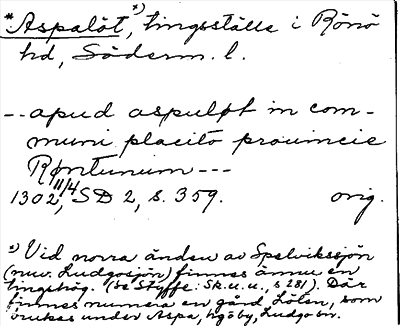 *Aspalöt, *) tingsställe i Rönö
hd, Söderm. l.
-- apud aspuløt in com-
muni placito prouincie
Røntunum ---
1302 11/4, SD 2, s. 359. orig.
*) Vid norra änden av Spelvikssjön
(nuv. Ludgosjön) finnes ännu en
tingshög. (se Styffe: Sk. u. u., s 281). Där
finnes numera en gård Löten, som
brukas under Aspa, hgöby, Ludgo sn.